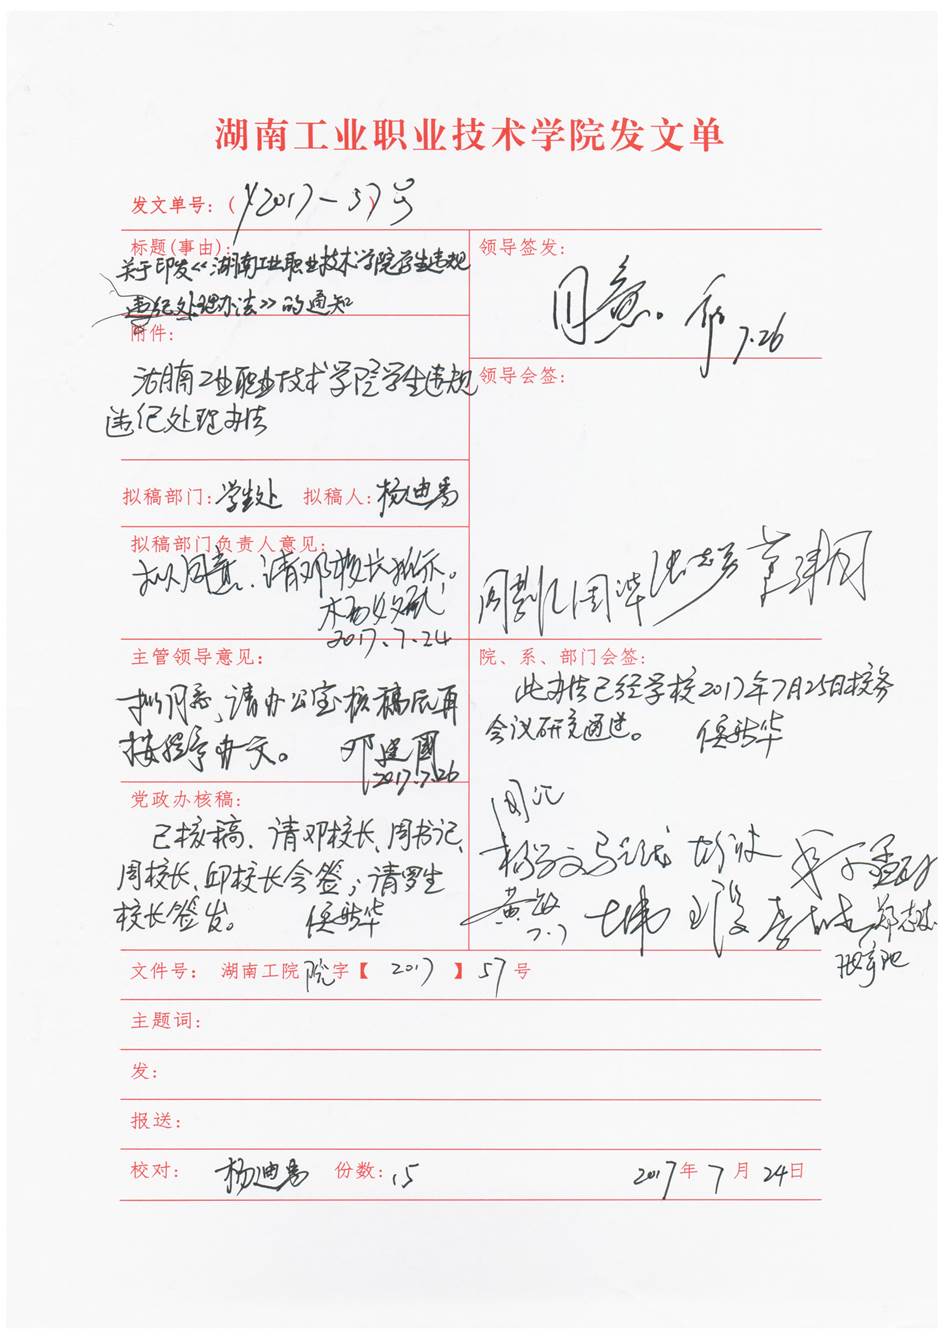 湖南工业职业技术学院发文单
发文单号:( )2017-57号
标题(事由):
关于印发《湖南工业职业技术学院学生违规
违纪处理办法》的通知
附件:
湖南工业职业技术学院学生违规
违纪处理办法
拟稿部门:学生处 拟稿人:杨迪
拟稿部门负责人意见:
拟同意、请邓校长批示。
2017.7.24
主管领导意见:
拟同意,请办公室核稿后再
按程序办文。 邓建国
2017.7.26
党政办核稿:
已核稿、请邓校长、周书记、
周校长、邱校长会签;请罗生
校长签发。
领导签发:
同意。
7.26
领导会签:
院、系、部门会签:
此办法已经学校2017年7月25日校务
会议研究通过。
黄敏
7.7
文件号: 湖南工院 院 字【 2017 】 57 号
主题词:
发:
报送:
校对: 杨迪 份数: 15 2017 年 7 月 24 日